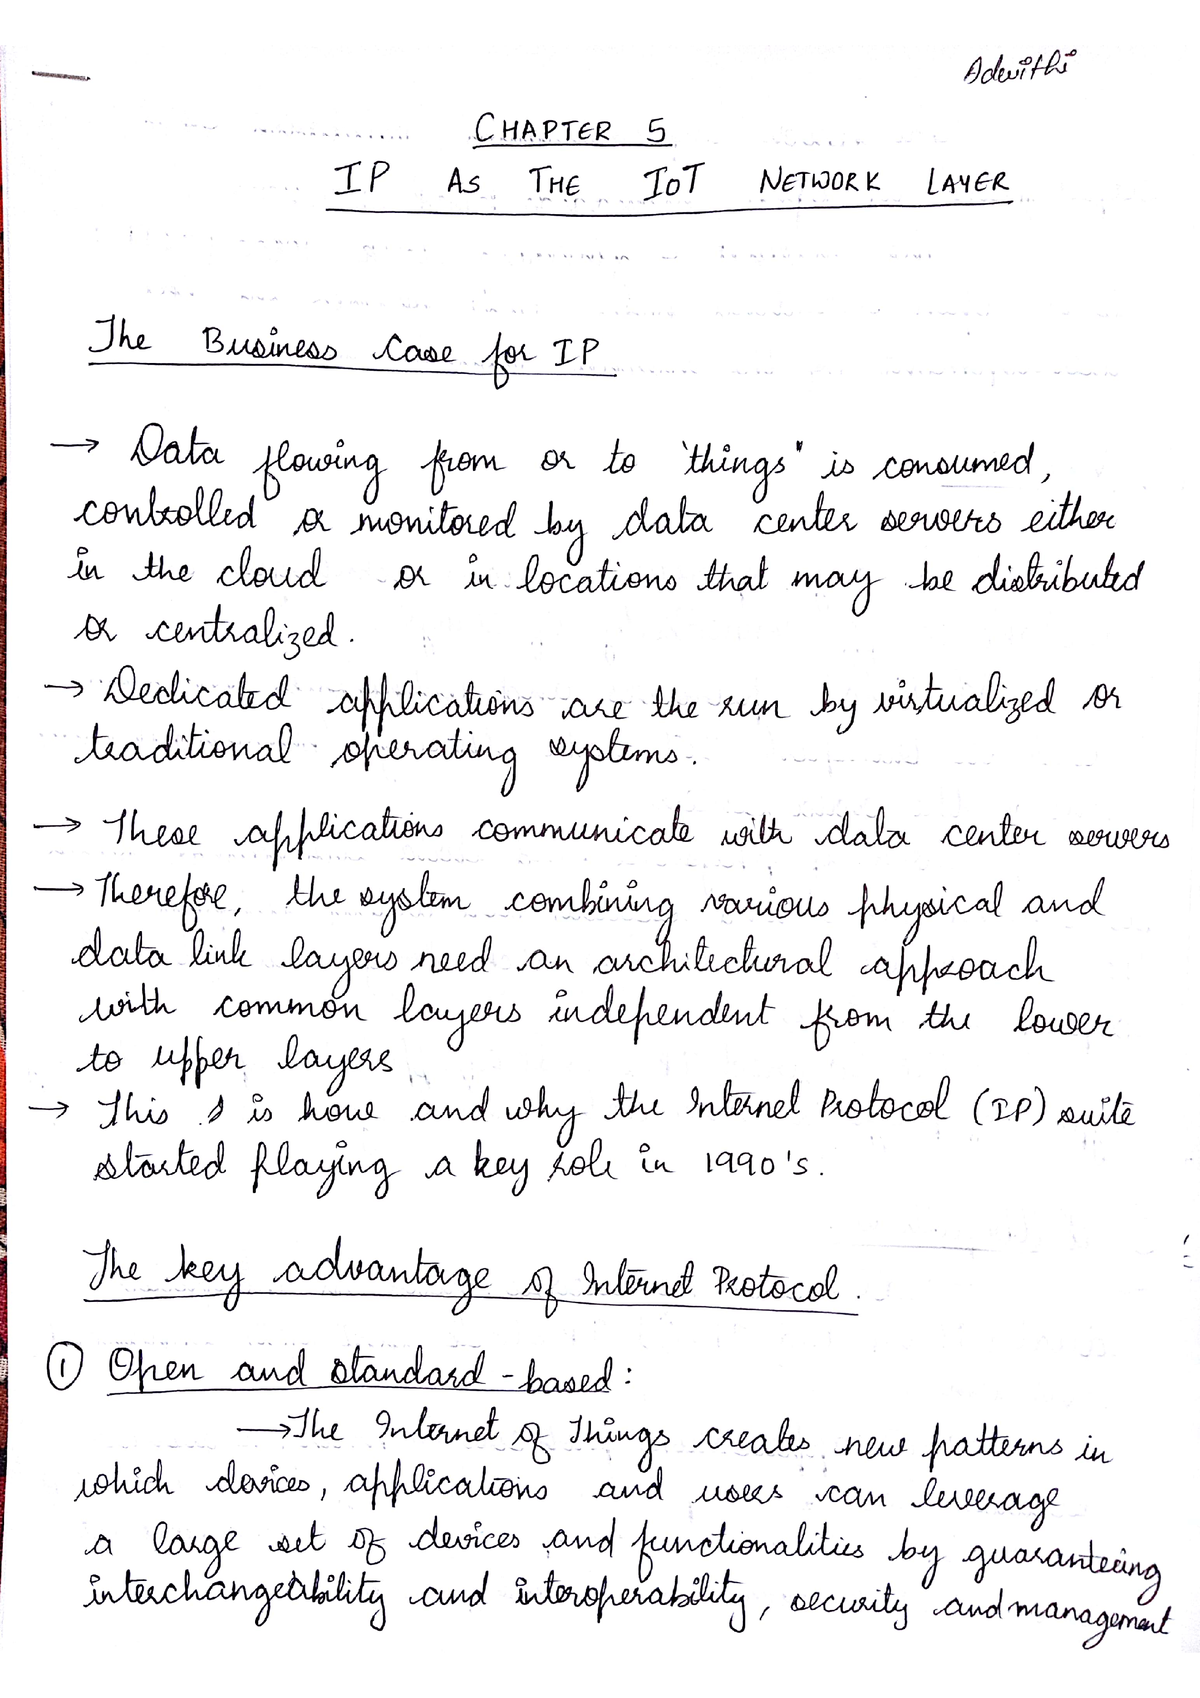 Adwithi
CHAPTER 5
IP AS THE IOT NETWORK LAYER
The Business Case for IP
→ Data flowing from or to "things" is consumed,
controlled or monitored by data center servers either
in the cloud or in locations that may be distributed
or centralized.
→ Dedicated applications are the run by virtualized or
traditional operating systems.
→ These applications communicate with data center servers
→ Therefore, the system combining various physical and
data link layers need an architectural approach
with common layers independent from the lower
to upper layers
→ This is how and why the Internet Protocol (IP) suite
started playing a key role in 1990's.
The key advantage of Internet Protocol.
① Open and standard-based:
→ The Internet of Things creates new patterns in
which devices, applications and users can leverage
a large set of devices and functionalities by guaranteeing
interchangeability and interoperability, security and management